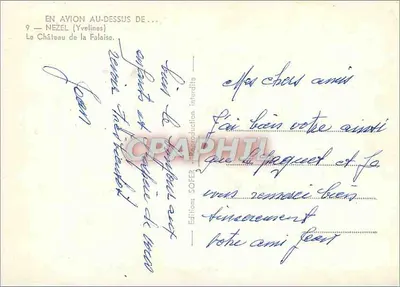 EN AVION AU-DESSUS DE...
9 — NEZEL (Yvelines)
Le Château de la Falaise.
Mes chers amis
J'ai bien votre ainsi
que le paquet et Je
vous remerci bien
sincerement
votre ami Jean
bien le bonjour aux
enfants et
de vous
revoir
Jean
Editions SOFER
Reproduction interdite
CPAPHIL